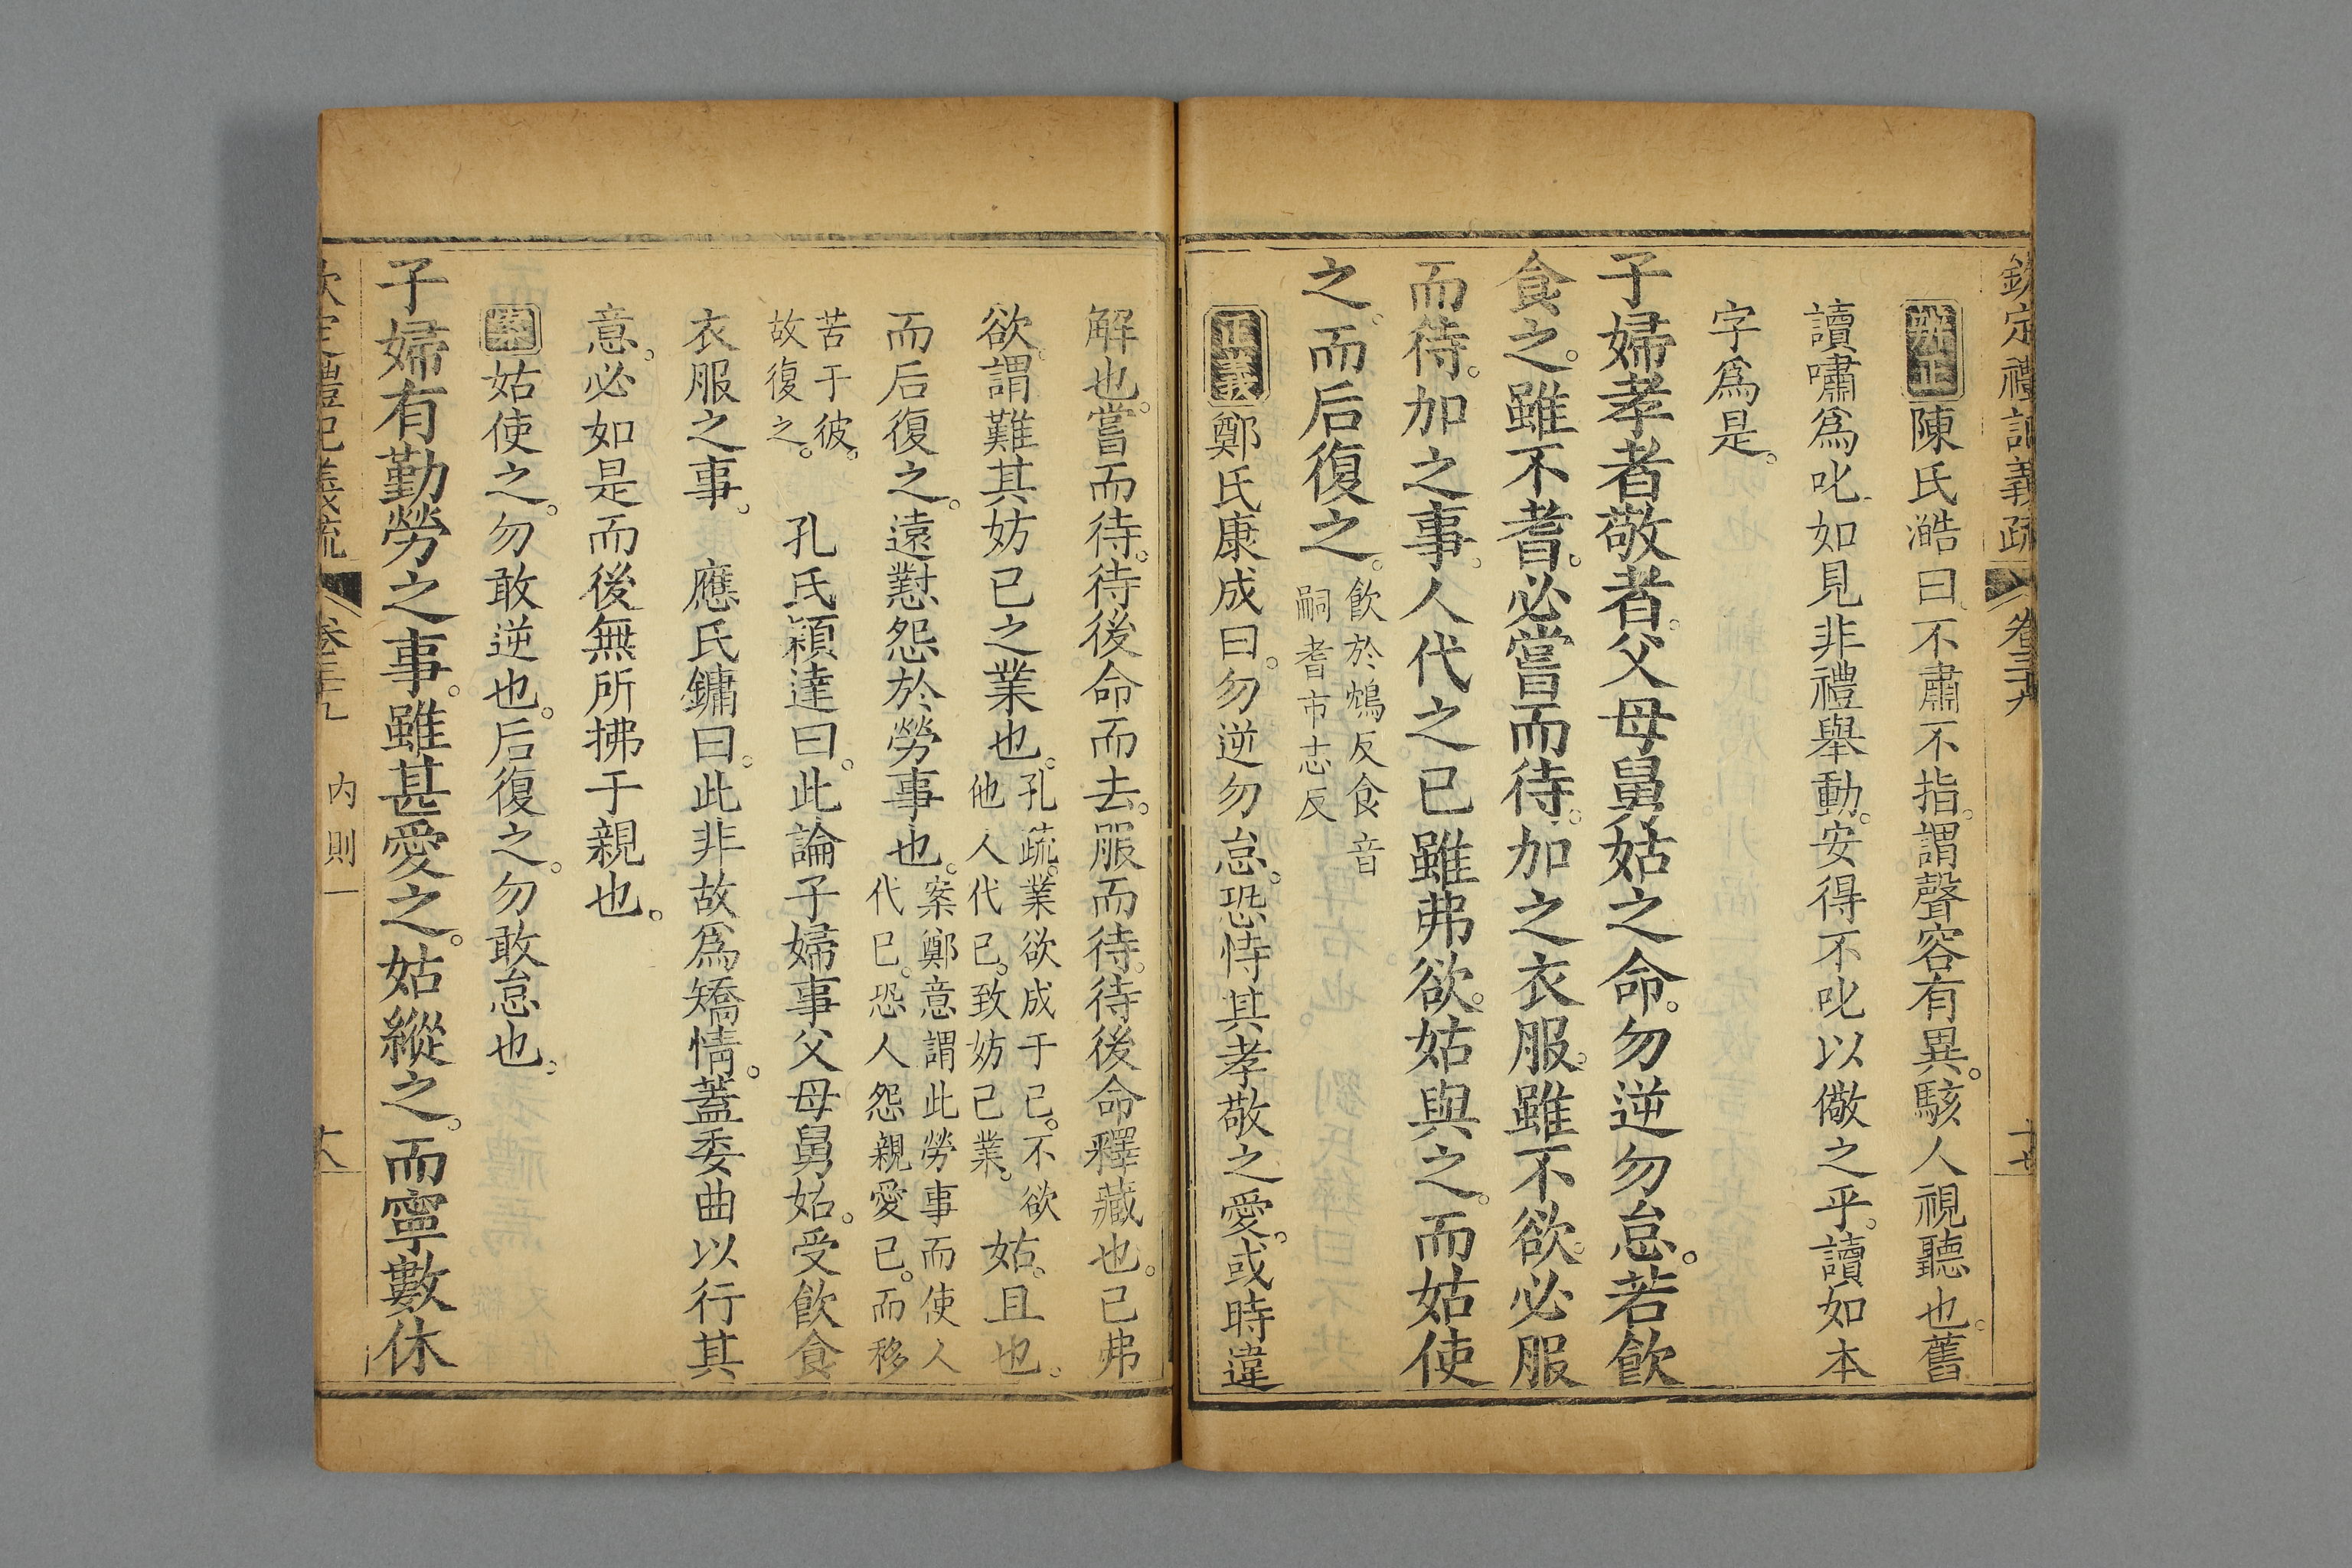 欽定禮記義疏 卷三十九 十七
辨正 陳氏澔曰不肅不指。謂聲容有異。駭人視聽也。舊
讀嘯爲叱。如見非禮舉動。安得不叱以儆之乎。讀如本
字爲是。
子婦孝者敬者。父母舅姑之命。勿逆勿怠。若飲
食之。雖不耆。必嘗而待。加之衣服。雖不欲。必服
而待。加之事。人代之已雖弗欲。姑與之。而姑使
之。而后復之。飲於鴆反食音
嗣耆市志反
正義 鄭氏康成曰。勿逆勿怠。恐恃其孝敬之愛。或時違
解也。嘗而待。待後命而去。服而待。待後命釋藏也。已弗
欲。謂難其妨已之業也。孔疏。業欲成于已。不欲
他人代已。致妨己業。姑。且也。
而后復之。遠懟怨於勞事也。案鄭意謂此勞事而使人
代已。恐人怨親愛已。而移
苦于彼。
故復之。 孔氏穎達曰。此論子婦事父母舅姑。受飲食
衣服之事。 應氏鏞曰。此非故爲矯情。蓋委曲以行其
意。必如是而後無所拂于親也。
案 姑使之。勿敢逆也。后復之。勿敢怠也。
子婦有勤勞之事。雖甚愛之。姑縱之。而寧數休
欽定禮記義疏 卷三十九 內則 十八